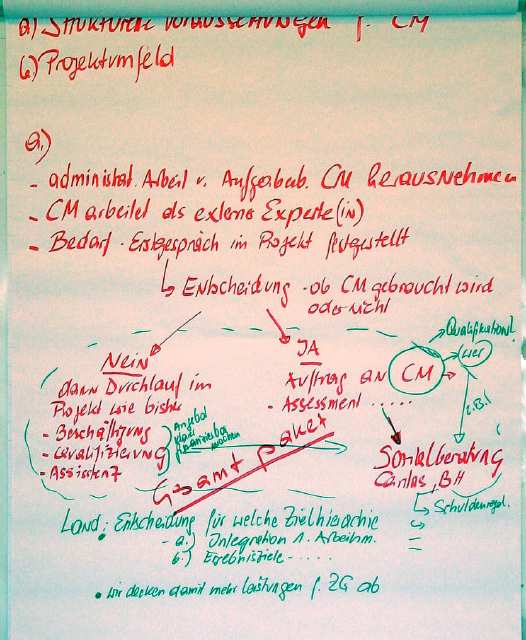 a) Strukturelle Voraussetzungen f. CM
b) Projektumfeld
a.)
- administrat. Arbeit v. Aufgabenb. CM herausnehmen
- CM arbeitet als externe Experte(in)
- Bedarf - Erstgespräch im Projekt festgestellt
Entscheidung - ob CM gebraucht wird
oder nicht
Nein
dann Durchlauf im
Projekt wie bisher
- Beschäftigung
- Qualifizierung
- Assistenz
Angebot
finanzierbar
machen
JA
Auftrag an CM
- Assessment ......
Qualifikation!
wer
z.B.
Sozialberatung
Caritas, BH
Schuldenregul.
Gesamtpaket
Land: Entscheidung für welche Zielhierarchie
- a.) Integration 1. Arbeitsm.
b.) Ergebnisziele - .....
• wir decken damit mehr Leistungen f. ZG ab